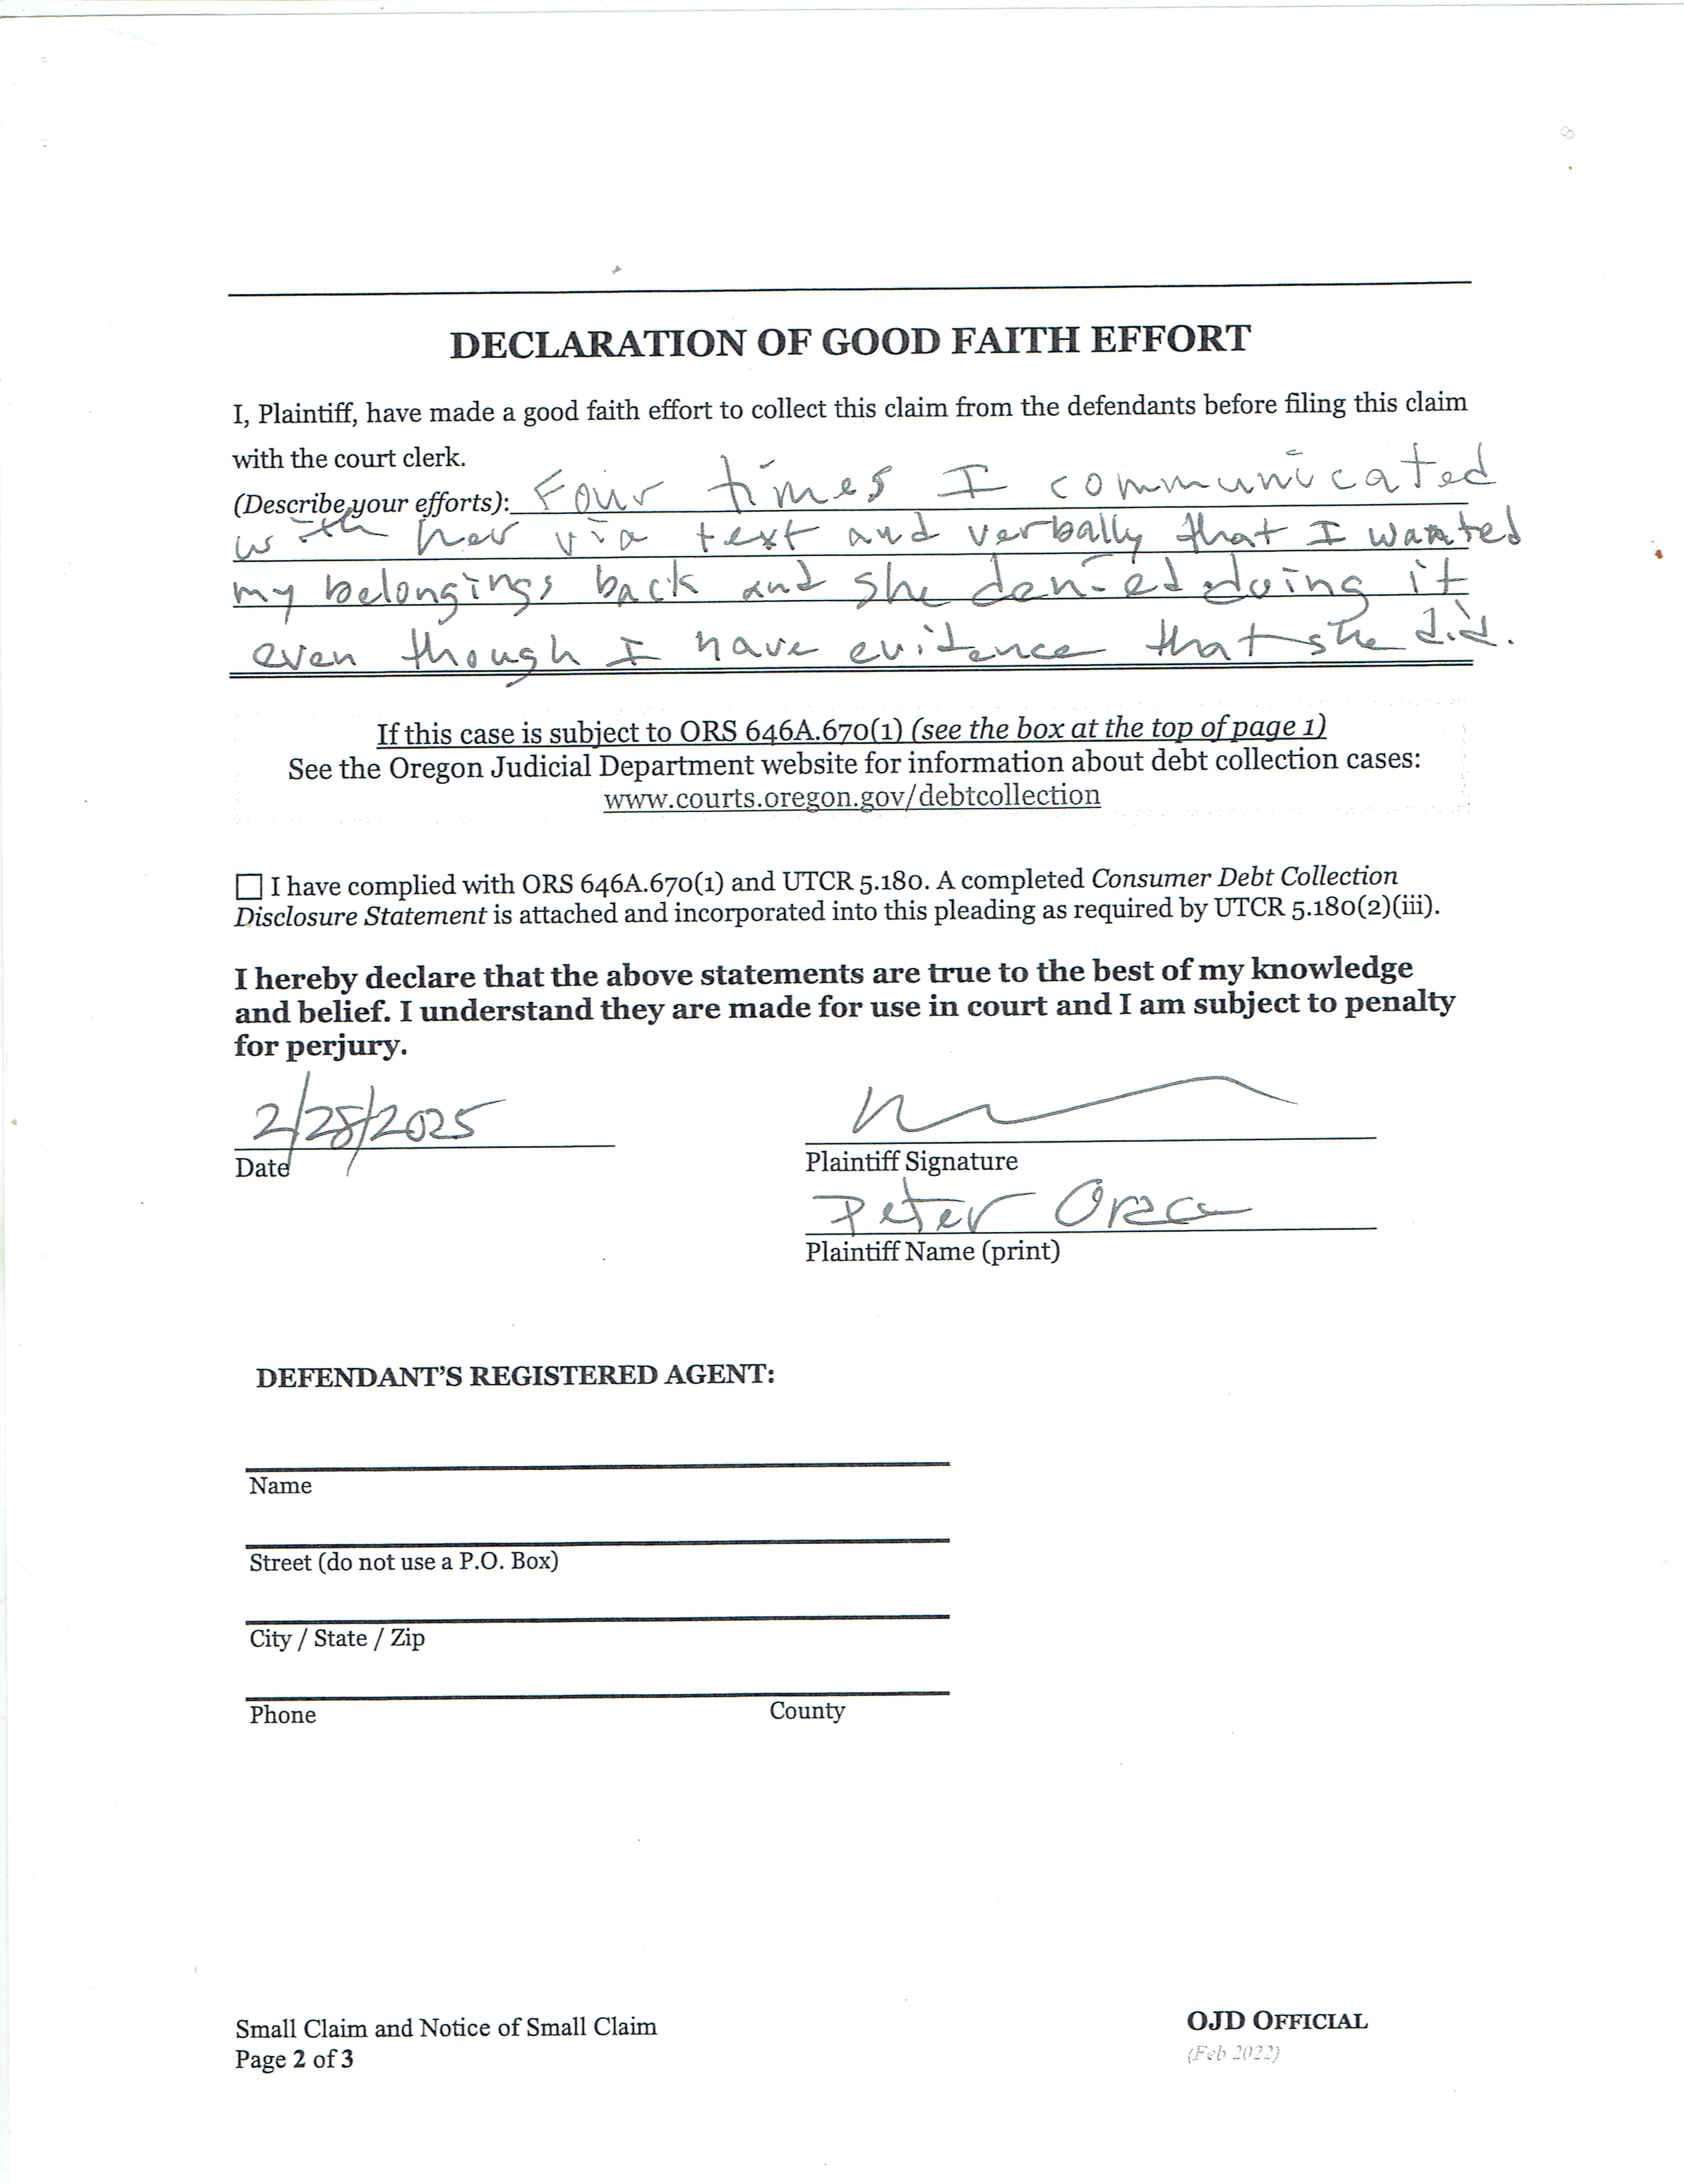 DECLARATION OF GOOD FAITH EFFORT
I, Plaintiff, have made a good faith effort to collect this claim from the defendants before filing this claim
with the court clerk.
(Describe your efforts): Four times I communicated
with her via text and verbally that I wanted
my belongings back and she denied doing it
even though I have evidence that she did.
If this case is subject to ORS 646A.670(1) (see the box at the top of page 1)
See the Oregon Judicial Department website for information about debt collection cases:
www.courts.oregon.gov/debtcollection
☐ I have complied with ORS 646A.670(1) and UTCR 5.180. A completed Consumer Debt Collection
Disclosure Statement is attached and incorporated into this pleading as required by UTCR 5.180(2)(iii).
I hereby declare that the above statements are true to the best of my knowledge
and belief. I understand they are made for use in court and I am subject to penalty
for perjury.
2/28/2025
Date
Plaintiff Signature
Peter
Plaintiff Name (print)
DEFENDANT'S REGISTERED AGENT:
Name
Street (do not use a P.O. Box)
City / State / Zip
Phone County
Small Claim and Notice of Small Claim
Page 2 of 3
OJD OFFICIAL
(Feb 2022)